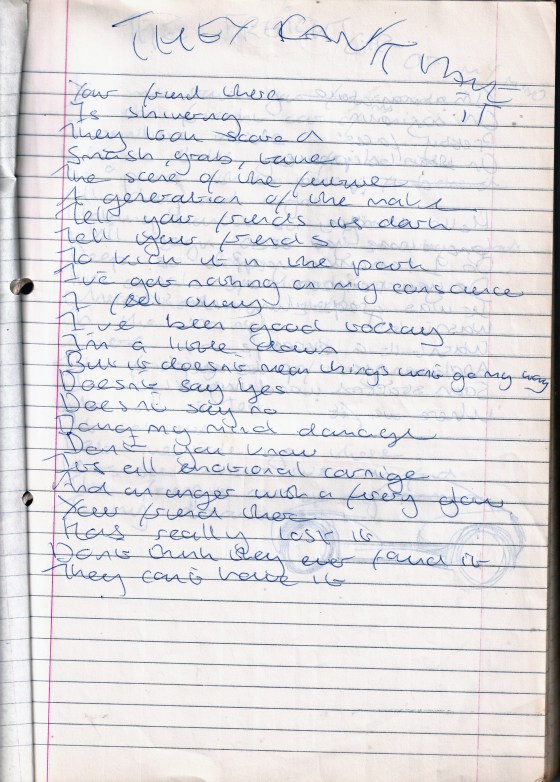 THEY CAN'T HAVE IT
Your friend there
Is shivering
They look scared
Smash, grab, take
The scene of the future
A generation of the make
Tell your friends its dark
Tell your friends
To kick it in the park
I've got nothing on my conscience
I feel okay
I've been good today
I'm a little down
But it doesn't mean things wont go my way
Doesn't say yes
Doesn't say no
Doing my mind damage
Don't you know
Its all emotional carnige
And an anger with a firey glow
Your friend there
Has really lost it
Don't think they ever found it
They can't have it